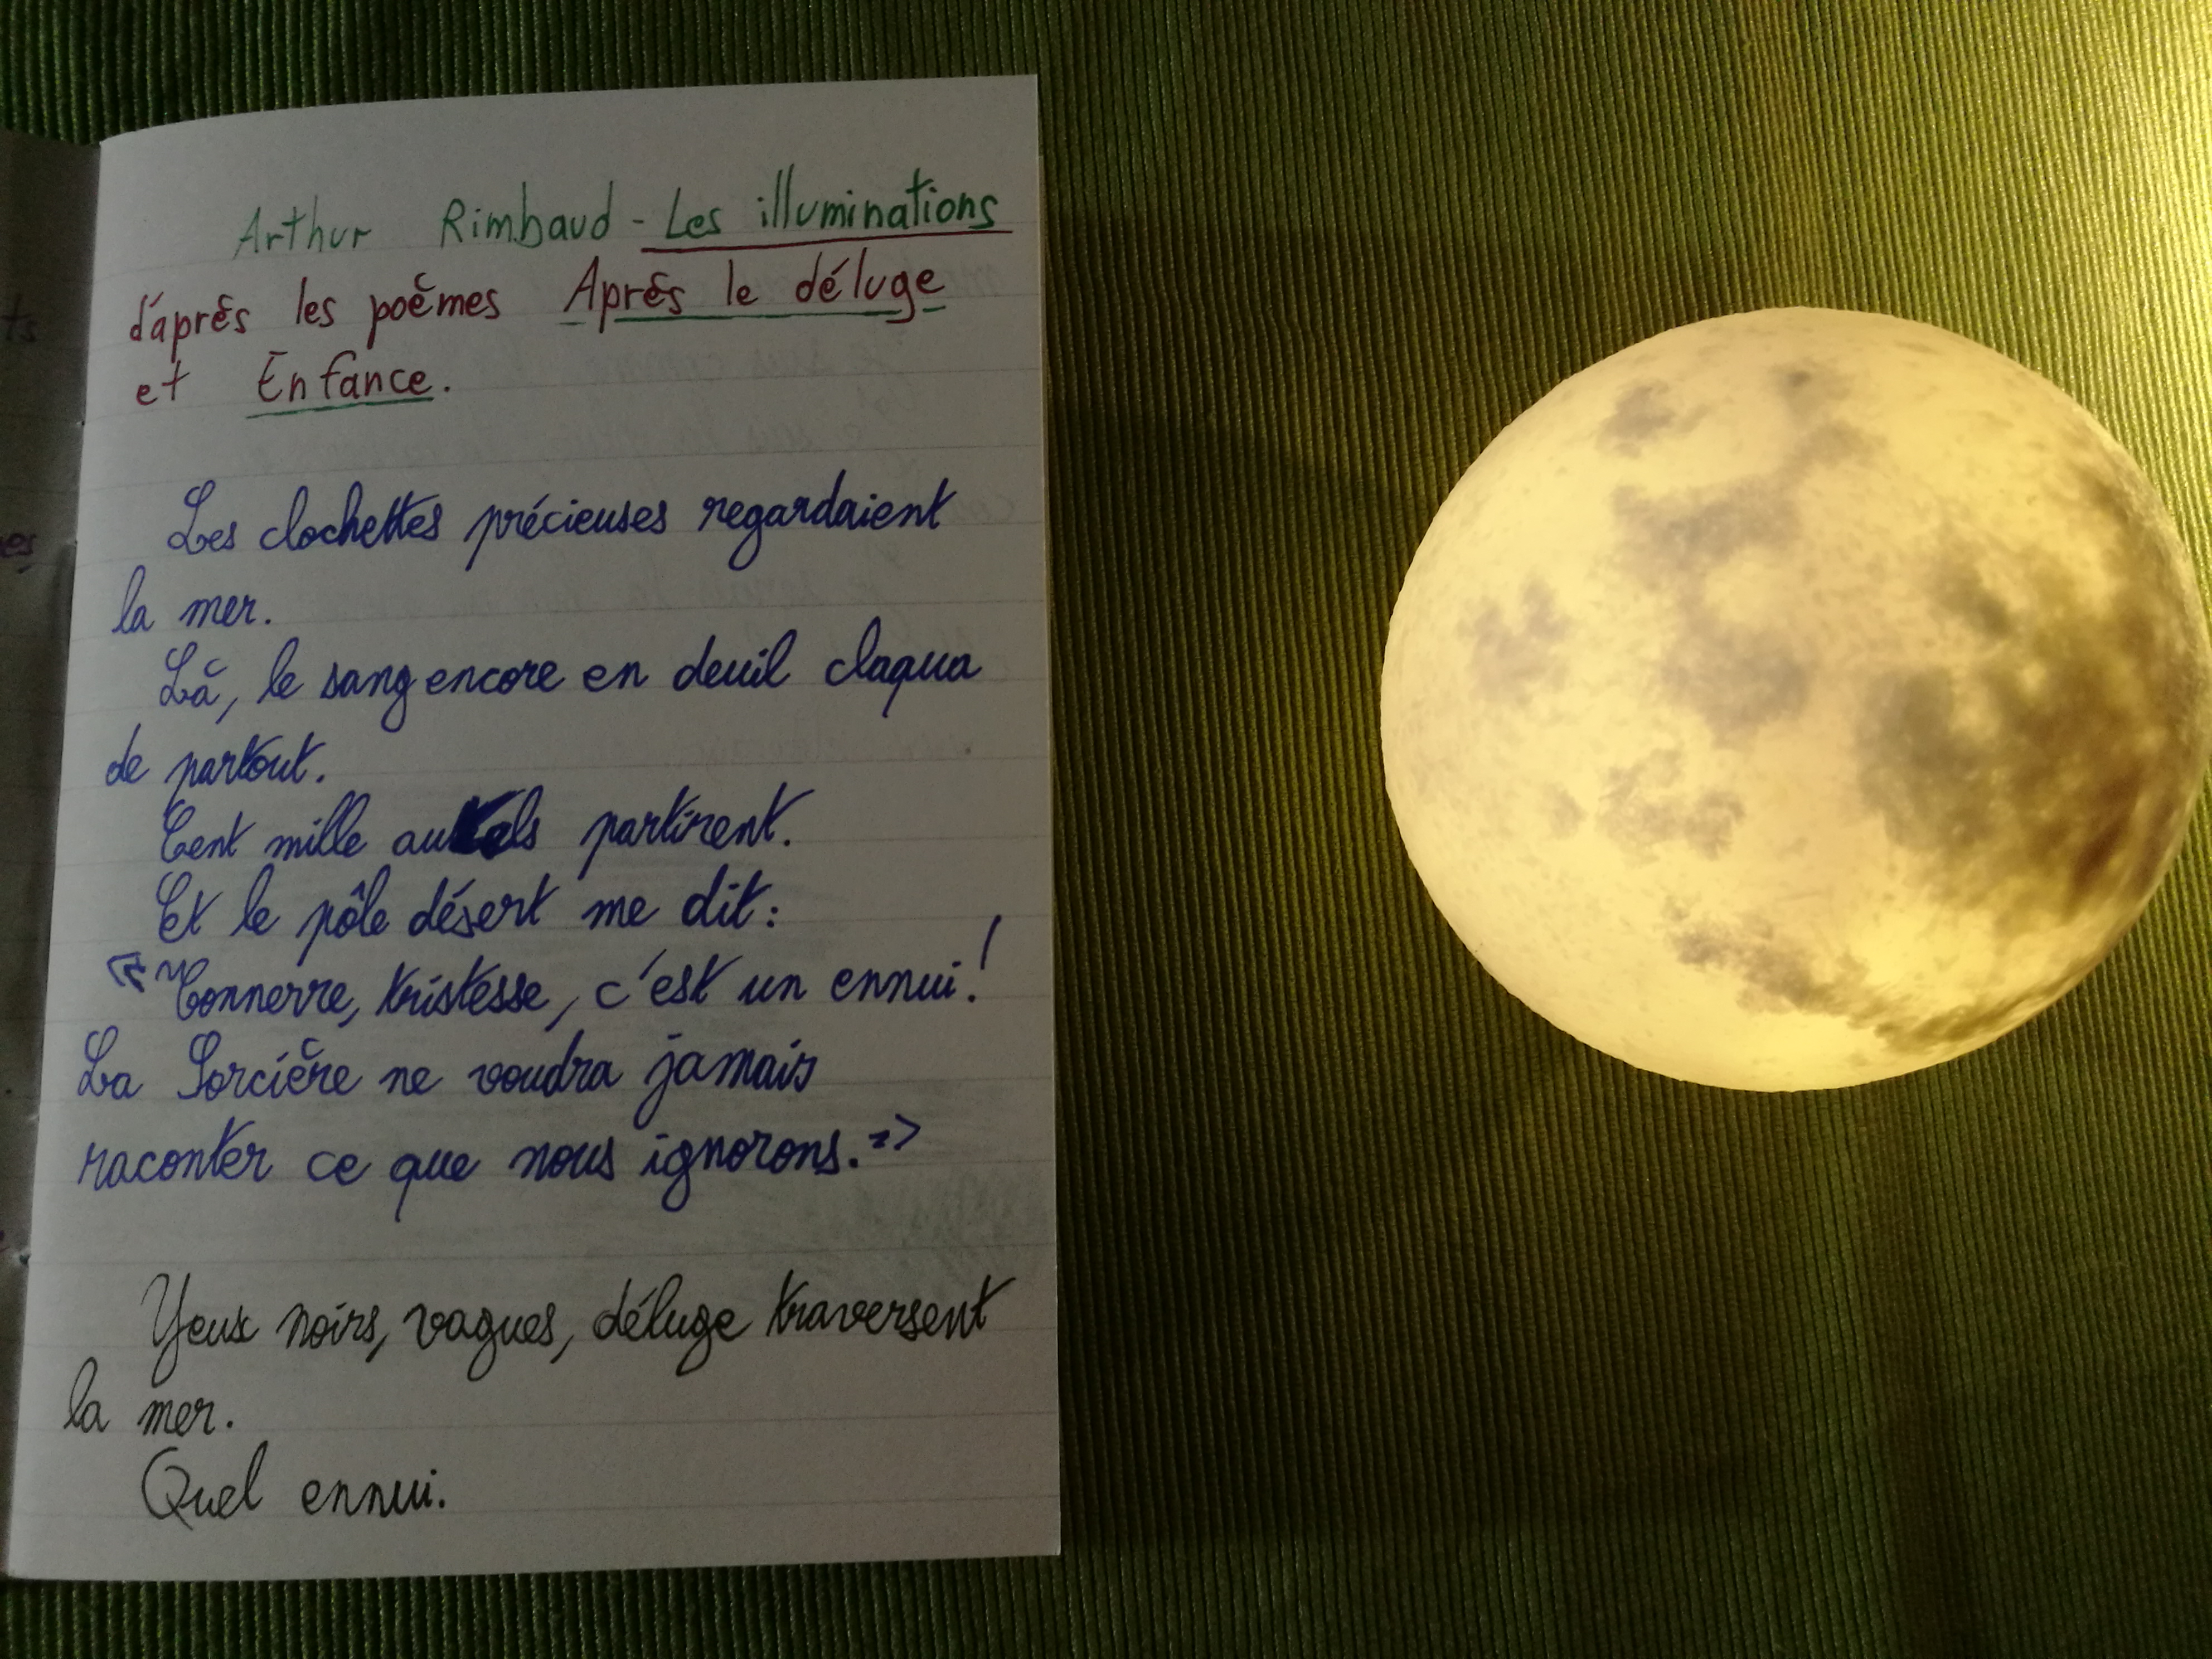 Arthur Rimbaud - Les illuminations
d'après les poèmes Après le déluge
et Enfance.
Les clochettes précieuses regardaient
la mer.
Là, le sang encore en deuil claqua
de partout.
Cent mille autels partirent.
Et le pôle désert me dit :
« Tonnerre, tristesse, c'est un ennui !
La Sorcière ne voudra jamais
raconter ce que nous ignorons. »
Yeux noirs, vagues, déluge traversent
la mer.
Quel ennui.
ts
es